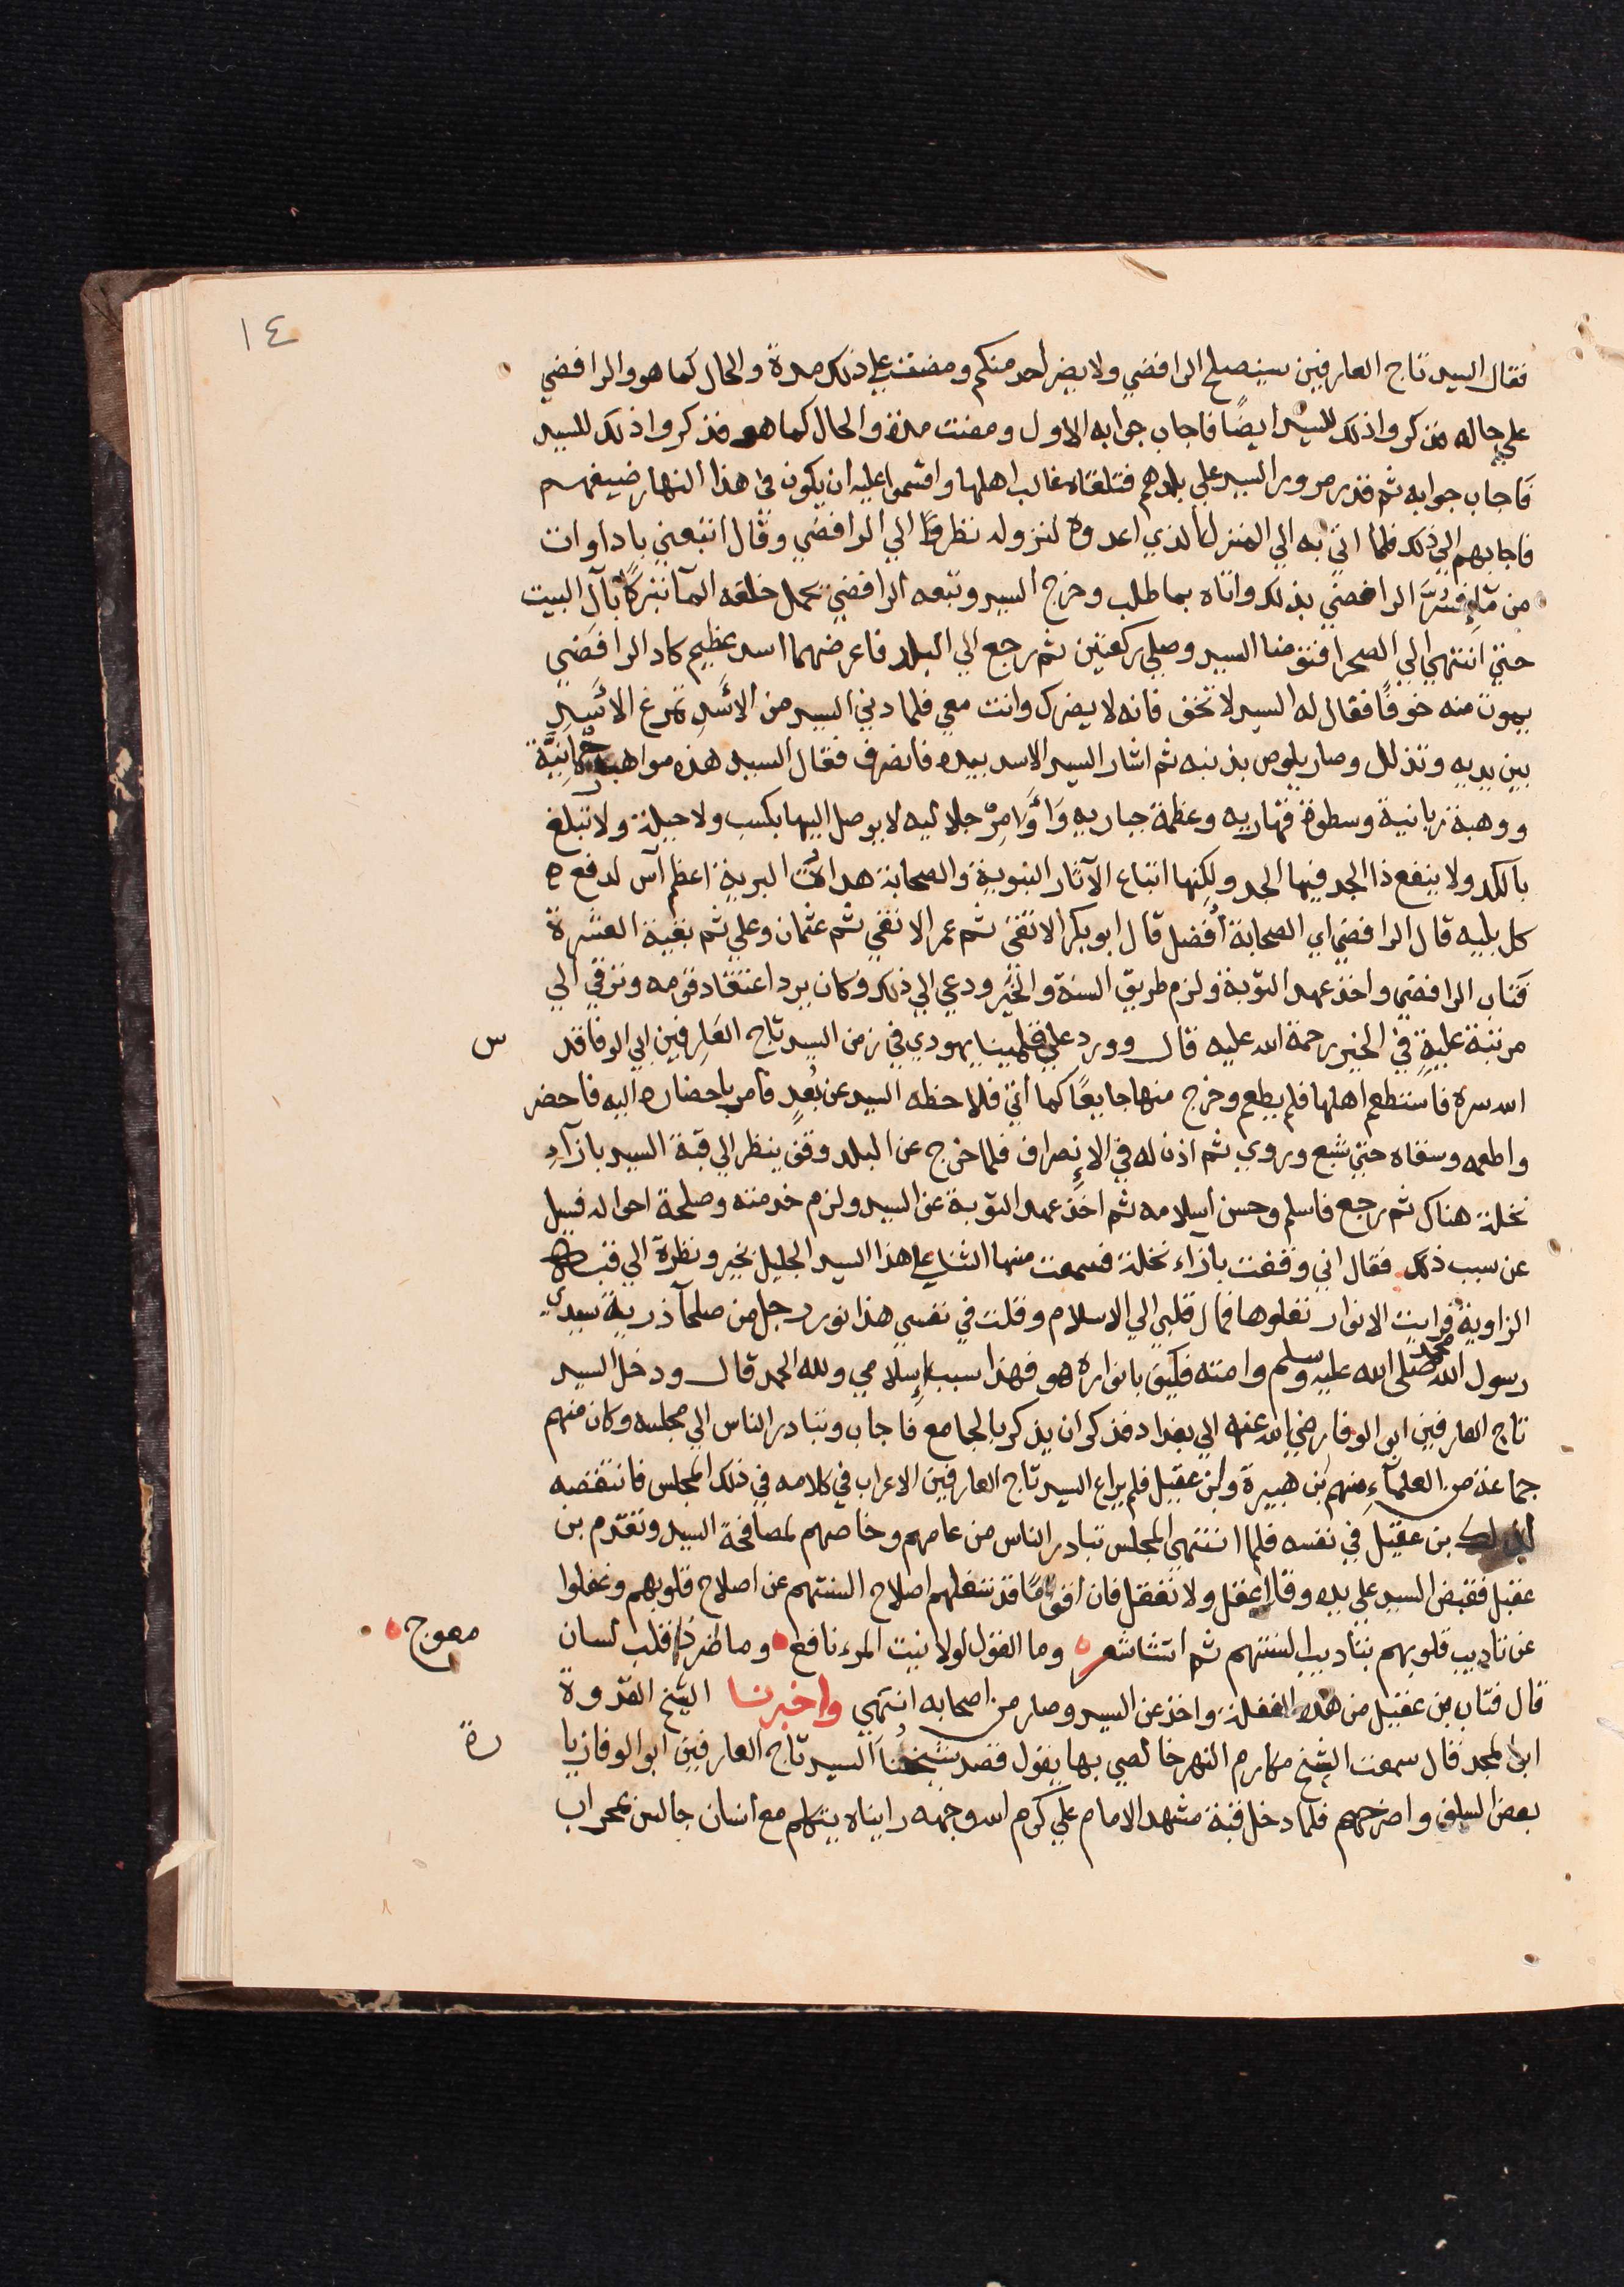 ١٤
فقال السيد تاج العارفين سينصلح الرافضي ولا يضر أحد منكم ومضت على ذلك مدة والحال كما هو والرافضي
على حاله فذكروا ذلك للسيد ايضًا فاجاب جوابه الاول ومضت مدة والحال كما هو فذكروا ذلك للسيد
فاجاب جوابه ثم قدر مرور السيد على بلدهم فتلقاه غالب اهلها واقسموا عليه ان يكون في هذا النهار ضيفهم
فاجابهم الى ذلك فلما اتى به الي المنزل الذي اعدوه لنزوله نظر الي الرافضي وقال اتبعني باداوات
من مآء فسُرَّ الرافضي بذلك واتاه بما طلب وخرج السيد وتبعه الرافضي يحمل خلفه المآ تبركًا بآل البيت
حتي انتهي الي الصحرا فتوضا السيد وصلي ركعتين ثم رجع الي البلد فاعرضهما اسد عظيم كاد الرافضي
يموت منه خوفًا فقال له السيد لا تخف فانه لا يضرك وانت معي فلما دني السيد من الاسَدِ تمرغ الاسَد
بين يديه وتذلل وصار يلوص بذنبه ثم اشار السيد الاسد بيده فانصرف فقال السيد هذه مواهب رحمانيَّة
ووهبة ربانية وسطوة قهاريه وعظمة جباريه وَأوَامِرْ جلاليه لا يوصل اليها بكسب ولا حيلة ولا تبلغ
بالكد ولا ينفع ذا الجد فيها الجد ولكنها اتباع الآثار النبوية والصحابة هداة البرية اعظم آس لدفع
كل بليه قال الرافضي اي الصحابة أفضل قال ابو بكر الاتقى ثم عمر الانقي ثم عثمان وعلي ثم بقية العشرة
فتاب الرافضي واخذ عهد التوبة ولزم طريق السنة والخير ودعي الي ذلك وكان يرد اعتقاد قومه وترقي الي
مرتبة علية في الخير رحمة الله عليه قال وورد علي قلمينيا يهودي في زمن السيد تاج العارفين ابي الوفا قد س
الله سره فاستطعم اهلها فلم يطعم وخرج منها جايعًا كما اتي فلاحظه السيد عن بُعدٍ فامر باحضاره اليه فاحضر
واطعمه وسقاه حتي شبع وروي ثم اذن له في الانصراف فلما خرج عن البلد وقف ينظر الي قبة السيد بازآء
نخلة هناك ثم رجع فاسلم وحسن اسلامه ثم اخذ عهد التوبة عن السيد ولزم خدمته وصلحة احواله فسيل
عن سبب ذلك فقال اني وقفت بازاء نخلة فسمعت منها الثنا علي هذا السيد الجليل بخير ونظرة الي قبة
الزاوية فرايت الانوار تعلوها فمال قلبي الي الاسلام وقلت في نفسي هذا نور رجل من صلحآ ذرية سيدي
رسول الله محمد صلى الله عليه وسلم وامته فكيف بانواره هو فهذا سبب اسلامي ولله الحمد قال ودخل السيد
تاج العارفين ابو الوفا رضي الله عنه الي بغداد فذكر ان يذكر بالجامع فاجاب وتبادر الناس الي مجلسه وكان منهم
جماعة من العلمآء منهم بن هبيرة وبن عقيل فلم يراع السيد تاج العارفين الاعراب في كلامه في ذلك المجلس فانتقصه
لذلك بن عقيل في نفسه فلما انتهى المجلس تبادر الناس من عامهم وخاصهم لمصافحة السيد وتقدم بن
عقيل فقبض السيد علي يده وقال اعقل ولا تغفل فان اقوامًا قد شغلهم اصلاح السنتهم عن اصلاح قلوبهم وغفلوا
عن تاديب قلوبهم بتاديب السنتهم ثم انشا شعر وما القول لولا نيت المرء نافع وما ضر ذا قلب لسان معوج
قال فتاب بن عقيل من هذه الغفلة واخذ عن السيد وصار من اصحابه انتهي واخبرنا الشيخ القدوة
ابو المجد قال سمعت الشيخ مكارم النهرخالصي بها يقول قصد شيخنا السيد تاج العارفين ابو الوفا زيا رة
بعض السلف واضرحهم فلما دخل قبة مشهد الامام علي كرم الله وجهه رايناه يتكلم مع انسان جالس بمحراب